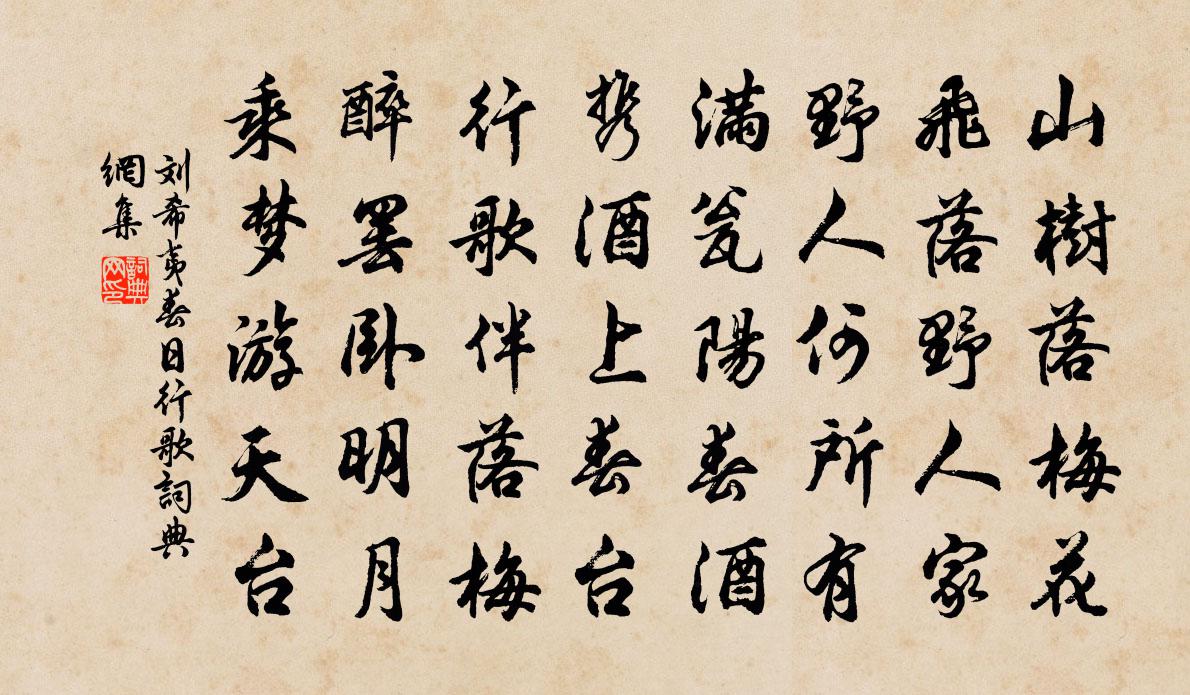 山樹落梅花
飛落野人家
野人何所有
満瓮陽春酒
携酒上春台
行歌伴落梅
醉罢卧明月
乘梦游天台
刘希夷春日行歌詞典
網集
詞典网印